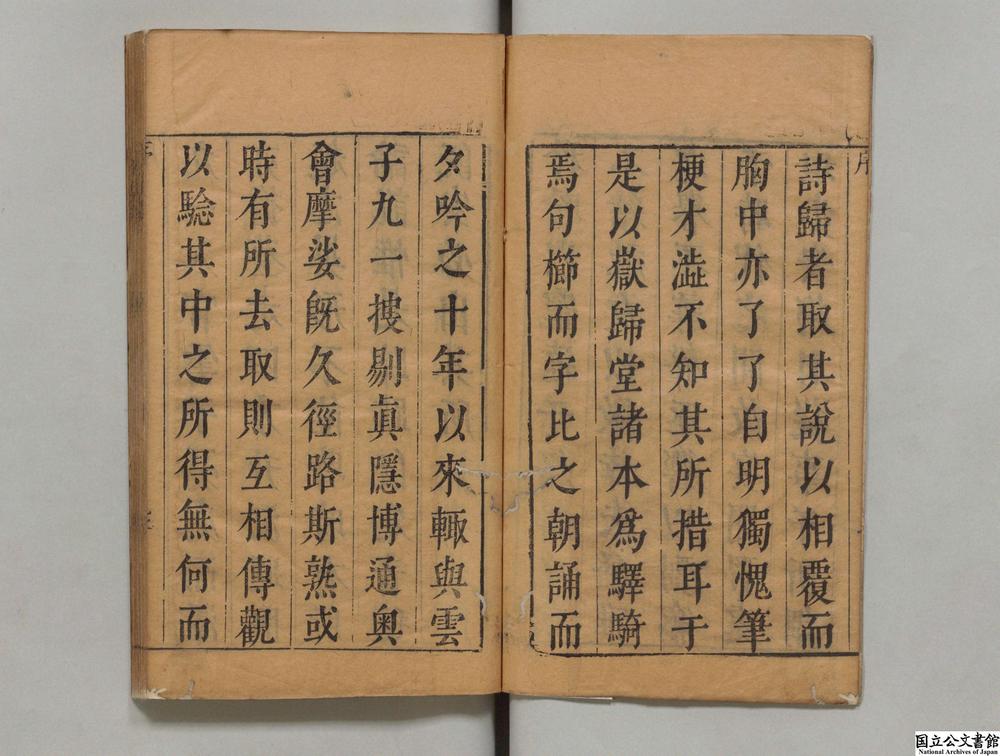 序
詩歸者取其說以相覆而
胸中亦了了自明獨愧筆
梗才澁不知其所措耳于
是以嶽歸堂諸本爲驛騎
焉句櫛而字比之朝誦而
夕吟之十年以來輙與雲
子九一摉剔眞隱博通奥
會摩娑旣久徑路斯熟或
時有所去取則互相傳觀
以驗其中之所得無何而
国立公文書館
National Archives of Japan